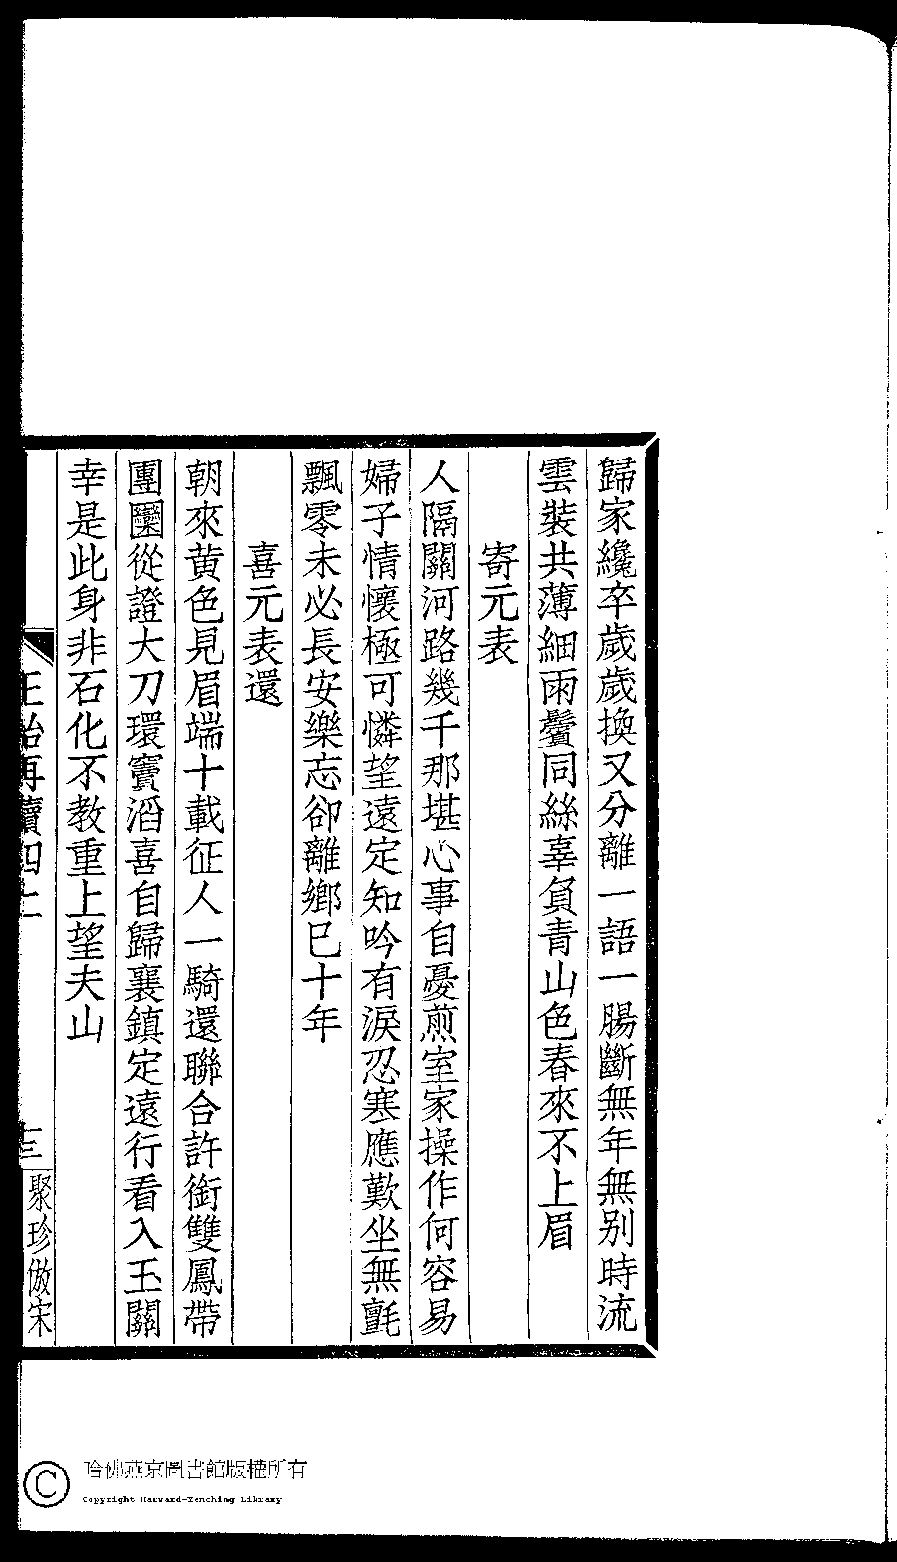 歸家纔卒歲歲換又分離一語一腸斷無年無別時流
雲裝共薄細雨鬢同絲辜負青山色春來不上眉
寄元表
人隔關河路幾千那堪心事自憂煎室家操作何容易
婦子情懷極可憐望遠定知吟有淚忍寒應歎坐無氈
飄零未必長安樂忘卻離鄉巳十年
喜元表還
朝來黃色見眉端十載征人一騎還聯合許銜雙鳳帶
團圞從證大刀環竇滔喜自歸襄鎮定遠行看入玉關
幸是此身非石化不教重上望夫山
正始再續四上
十三
聚珍倣宋
哈佛燕京圖書館版權所有
Copyright Harvard-Yenching Library